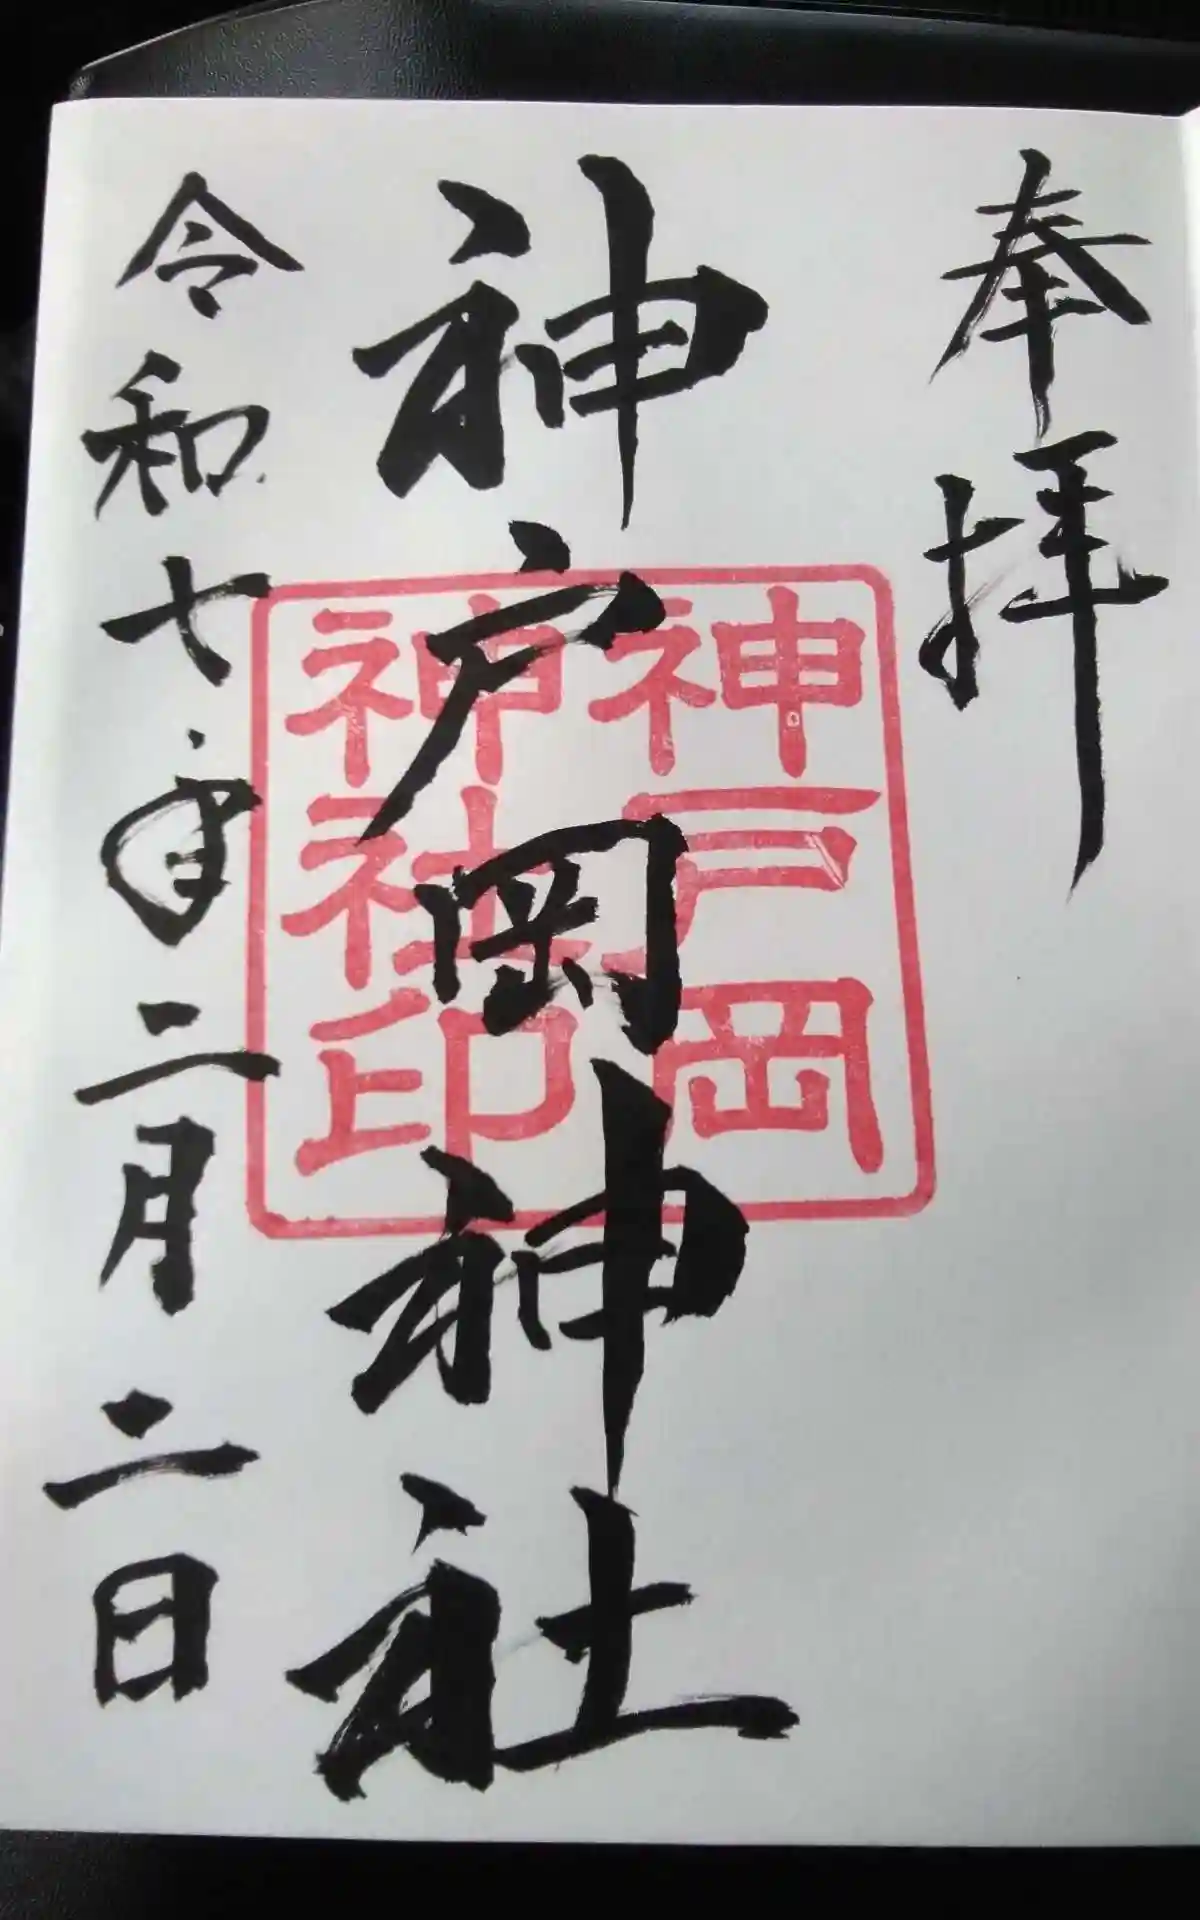 奉拝
神戸岡神社
神戸岡
神社印
令和七年二月二日